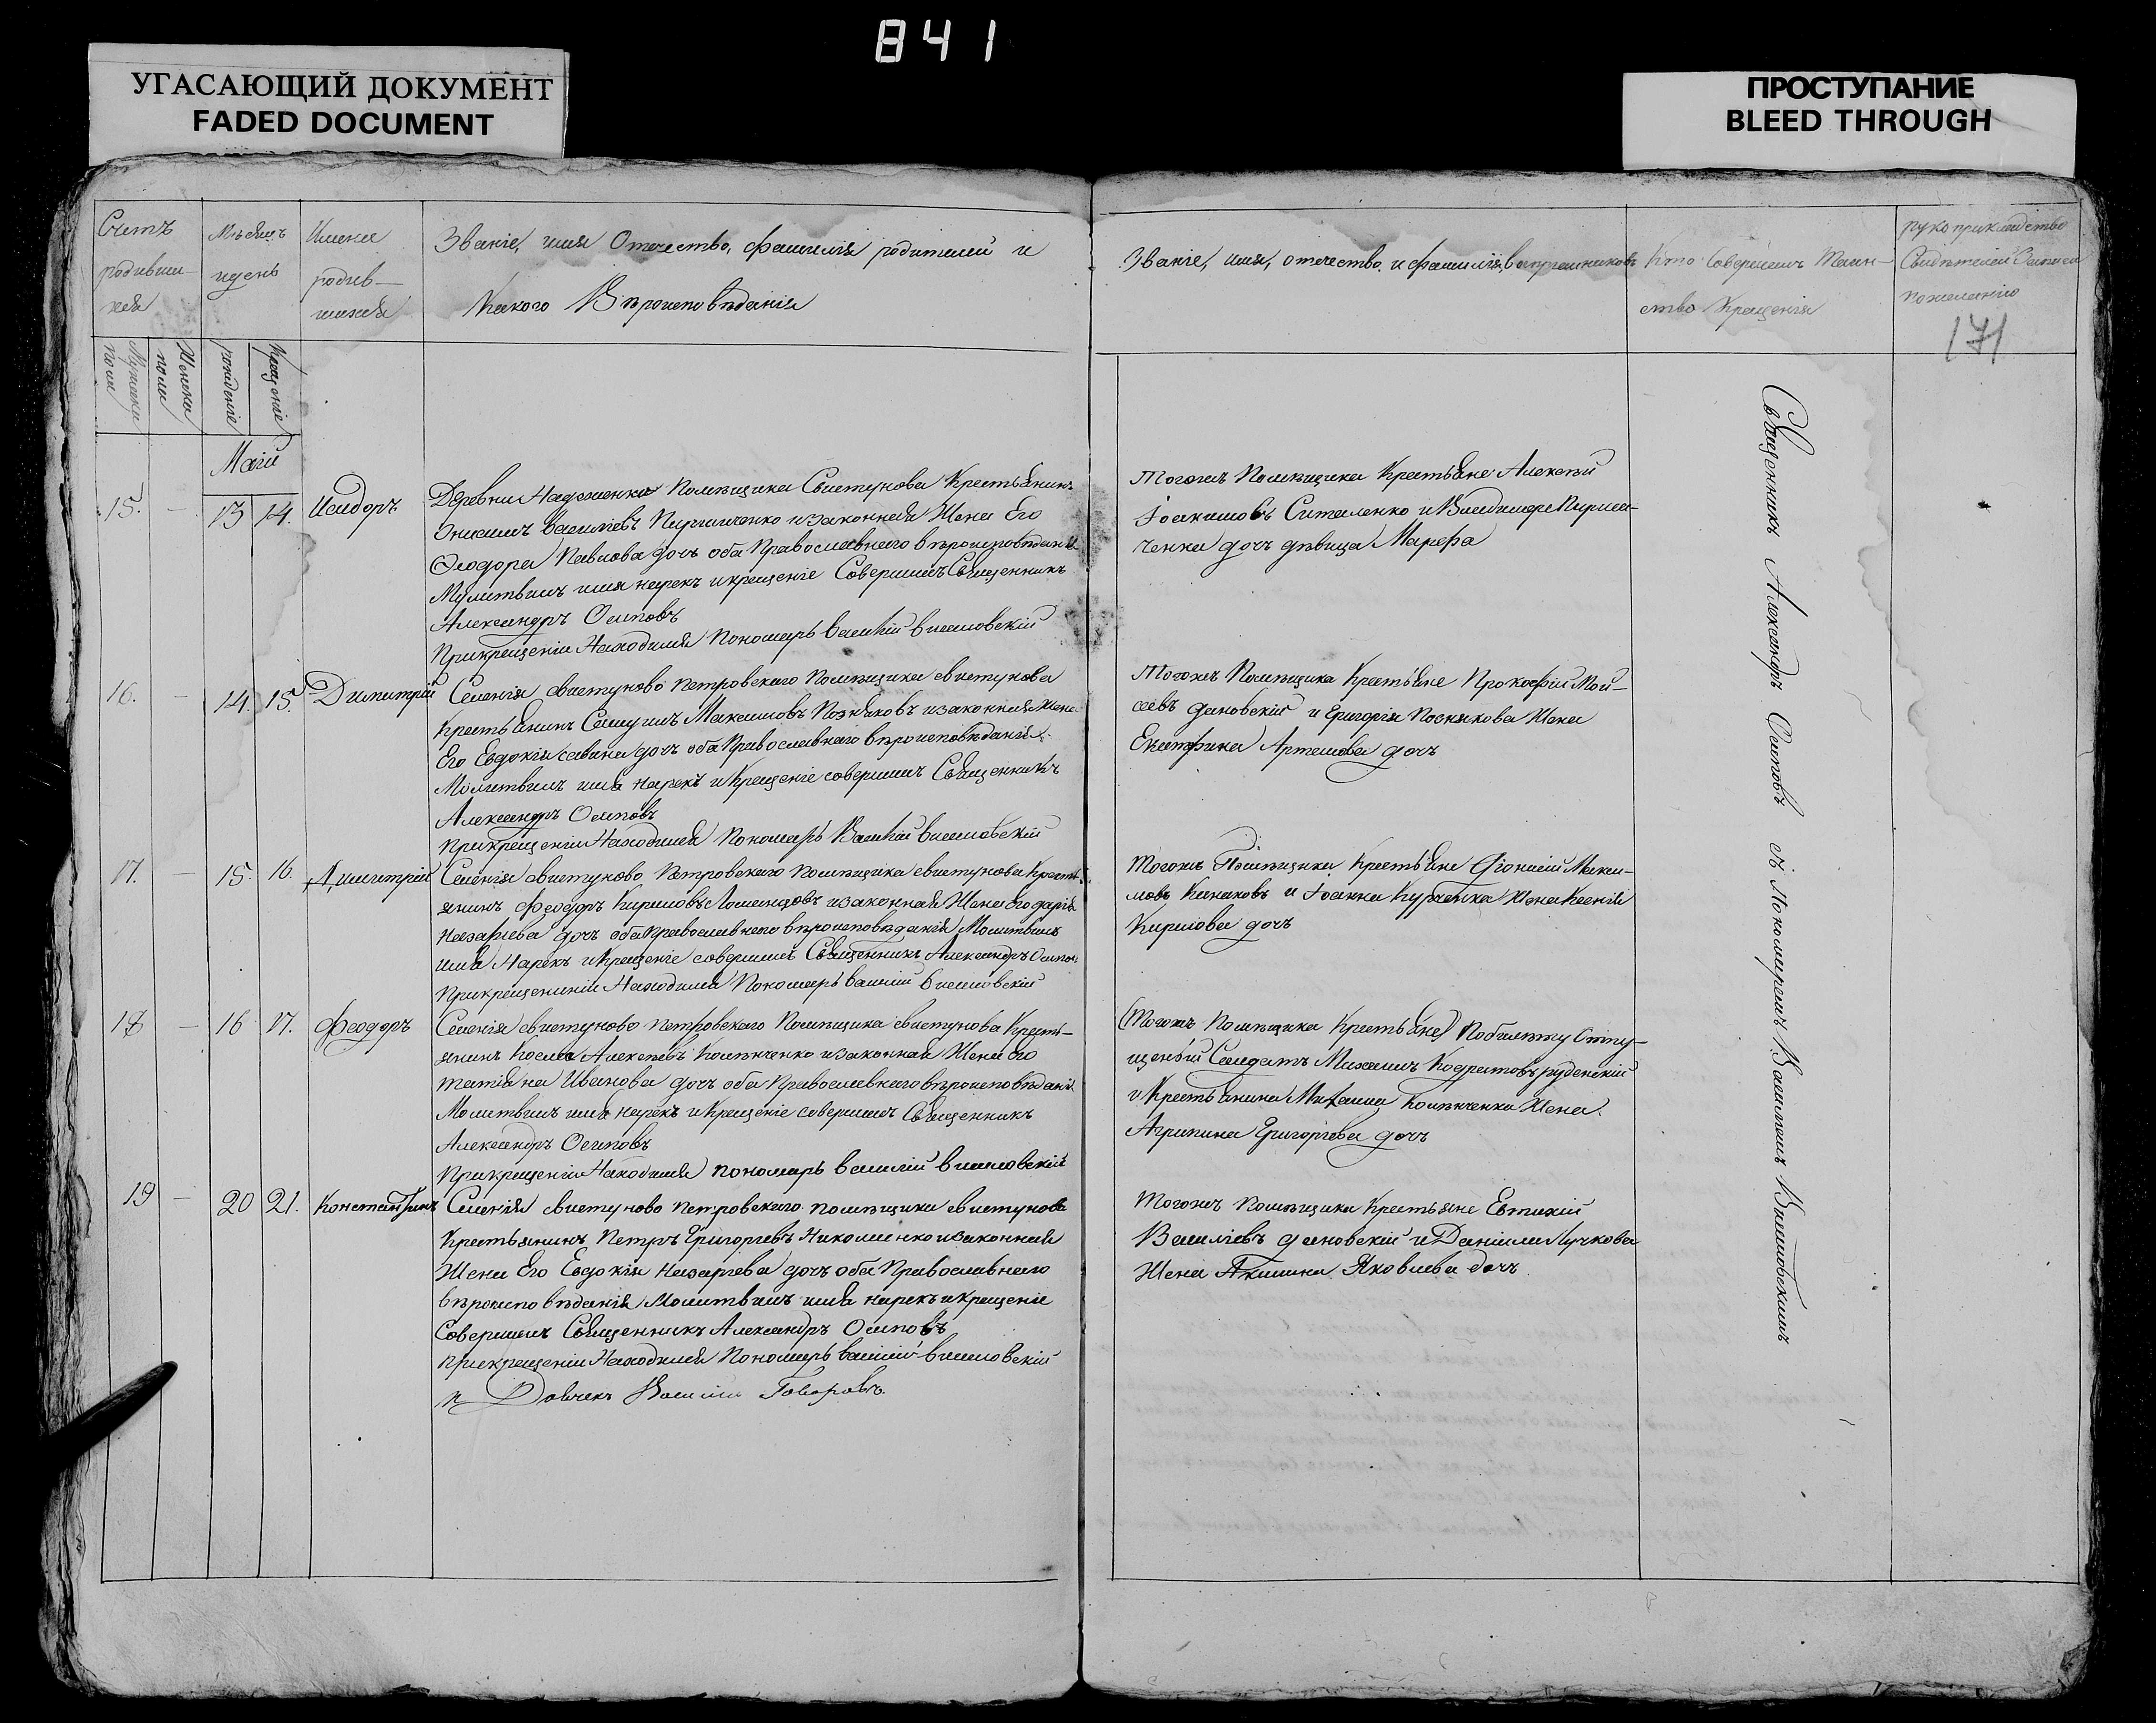 841
УГАСАЮЩИЙ ДОКУМЕНТ
FADED DOCUMENT
ПРОСТУПАНИЕ
BLEED THROUGH
Счетъ
родивши-
хся
Мужеска
пола
Женска
пола
Мѣсяцъ
и день
рожденіе
Крещеніе
Имена
родив-
шихся
Званіе, имя Отечество, фамилія родителей и
Какого Вѣроисповѣданія
Званіе, имя, отечество, и фамилія, воспріемниковъ
Кто Совершилъ Таин-
ство Крещенія
рукоприкладство
Свидѣтелей Записи
по желанію
171
Маій
15. — 13 14. Исидоръ
Деревни Надеженки Помѣщика Свистунова Крестьянинъ
Онисимъ Василіевъ Пирышченко и законная Жена Его
Ѳеодора Павлова дочъ оба Православнаго вѣроисповѣданія
Молитвилъ имя нарекъ и крещеніе Совершилъ Священникъ
Александръ Осиповъ
При крещеніи Находился Пономарь василій висловскій
Тогожъ Помѣщика Крестьяне Алексѣй
Іоакимовъ Ситаленко и Владимера
ченка дочъ дѣвица Марфа
16. — 14. 15. Димитрій
Селенія свистуново Петровскаго Помѣщика свистунова
Крестьянинъ Самуилъ Максимовъ Позняковъ и законная Жена
Его Евдокія савина дочъ оба Православнаго вѣроисповѣданія
Молитвилъ имя нарекъ и Крещеніе совершилъ Священникъ
Александръ Осиповъ
При крещеніи Находился Пономарь Василій висловскій
Тогожъ Помѣщика Крестьяне Прокофій Мой-
сеевъ дановскій и Григорія Познякова Жена
Екатерина Артемова дочъ
17. — 15. 16. Димитрій
Селенія свистуново Петровскаго Помѣщика свистунова Кресть-
янинъ Феодоръ Кириловъ и законная Жена Его дарія
Назарiева дочъ оба Православнаго вѣроисповѣданія Молитвилъ
имя Нарекъ и Крещеніе совершилъ Священникъ Александръ Осипов
При крещеніи Находился Пономарь василій висловскій
Тогожъ Помѣщика Крестьяне Діонисій Макси-
мовъ Канаковъ и Іоанна Курченка Жена Ксенія
Кирилова дочъ
18 — 16 17. Феодоръ
Селенія свистуново Петровскаго Помѣщика свистунова Кресть-
янинъ Косма Алексѣевъ Колѣнченко и законная Жена Его
татіяна Иванова дочъ оба Православнаго вѣроисповѣданія
Молитвилъ имя нарекъ и Крещеніе совершилъ Священникъ
Александръ Осиповъ
При крещеніи Находился пономарь василій висловскій
(Тогожъ Помѣщика Крестьяне) По билѣту Отпу-
щеный Салдатъ Михаилъ Кодратовъ руденскій
и Крестьянина Михаила Колѣнченка Жена
Агрипина Григоріева дочъ
19 — 20 21. Константинъ
Селенія свистуново Петровскаго помѣщика свистунова
Крестьянинъ Петръ Григорьевъ Николенко и законная
Жена Его Евдокія Назаріева дочъ оба Православнаго
вѣроисповѣданія Молитвилъ имя нарекъ и крещеніе
Совершилъ Священникъ Александръ Осиповъ
При крещеніи Находился Пономарь василій висловскій
Тогожъ помѣщика Крестьяне Евтихій
Василіевъ дановскій и Даніила Лучкова
Жена Акилина Яковлева дочъ
Священникъ Александръ Осиповъ съ Пономаремъ Василіемъ Висловскимъ